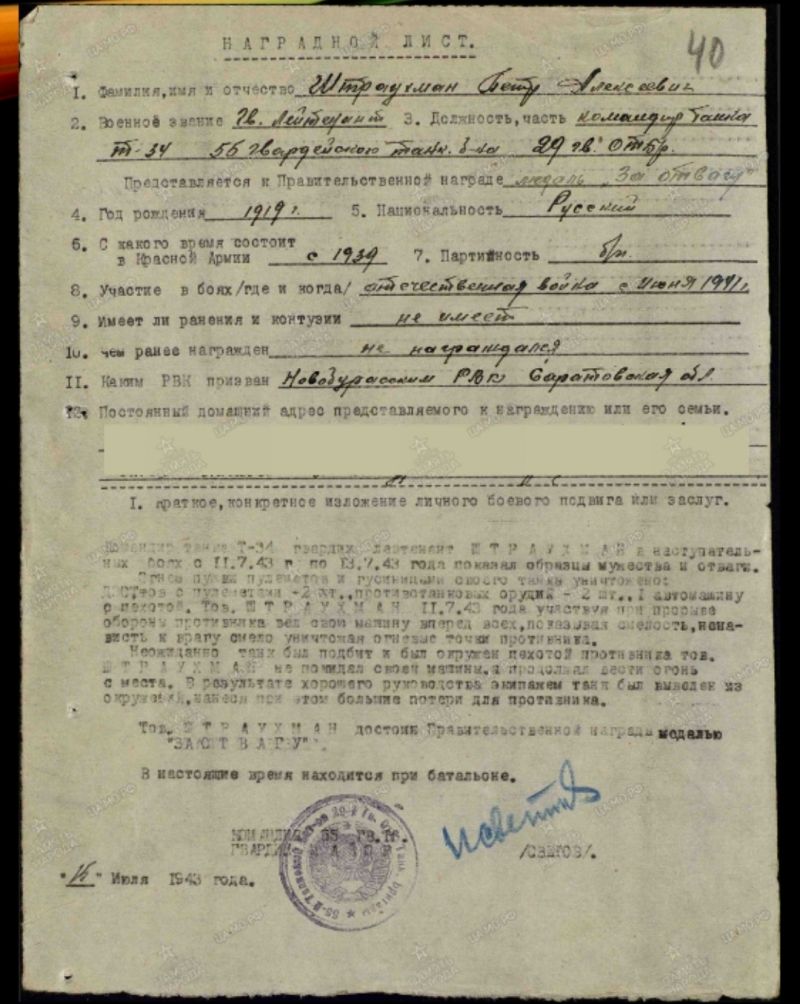 40
НАГРАДНОЙ ЛИСТ.
1. Фамилия,имя и отчество Штраухман Петр Алексеевич
2. Военное звание Гв. Лейтенант 3. Должность,часть командир танка
Т-34 55 гвардейского танк. б-на 29 гв. отбр.
Представляется к Правительственной награде медаль "За отвагу"
4. Год рождения 1919 г. 5. Национальность Русский
6. С какого время состоит
в Красной Армии с 1939 7. Партийность б/п.
8. Участие в боях/где и когда/ отечественная война с июня 1941 г.
9. Имеет ли ранения и контузии не имеет
10. чем ранее награжден не награждался
II. Каким РВК призван Новобурасским РВК Саратовская обл
12. Постоянный домашний адрес представляемого к награждению или его семьи.
I. Краткое,конкретное изложение личного боевого подвига или заслуг.
Командир танка Т-34 гвардии лейтенант ШТРАУХМАН в наступатель-
ных боях с II.7.43 г по 13.7.43 года показал образцы мужества и отваги.
Огнем пушки пулеметов и гусиницами своего танка уничтожено:
с пулеметами -2 шт.,противотанковых орудий - 2 шт., I автомашину
с пехотой. Тов. ШТРАУХМАН II.7.43 года участвуя при прорыве
обороны противника вел свою машину вперед всех,показывая смелость,нена-
висть к врагу смело уничтожая огневые точки противника.
Неожиданно танк был подбит и был окружен пехотой противника тов.
ШТРАУХМАН не покидал своей машины,а продолжал вести огонь
с места. В результате хорошего руководства экипажем танк был вывелен из
окружений,нанеся при этом большие потери для противника.
Тов. ШТРАУХМАН достоин Правительственной награды медалью
"ЗА ОТВАГУ".
В настоящие время находится при батальоне.
КОМАНДИР 55 ГВ.
ГВАРДИИ
/СВЕТОВ/.
"15" Июля 1943 года.